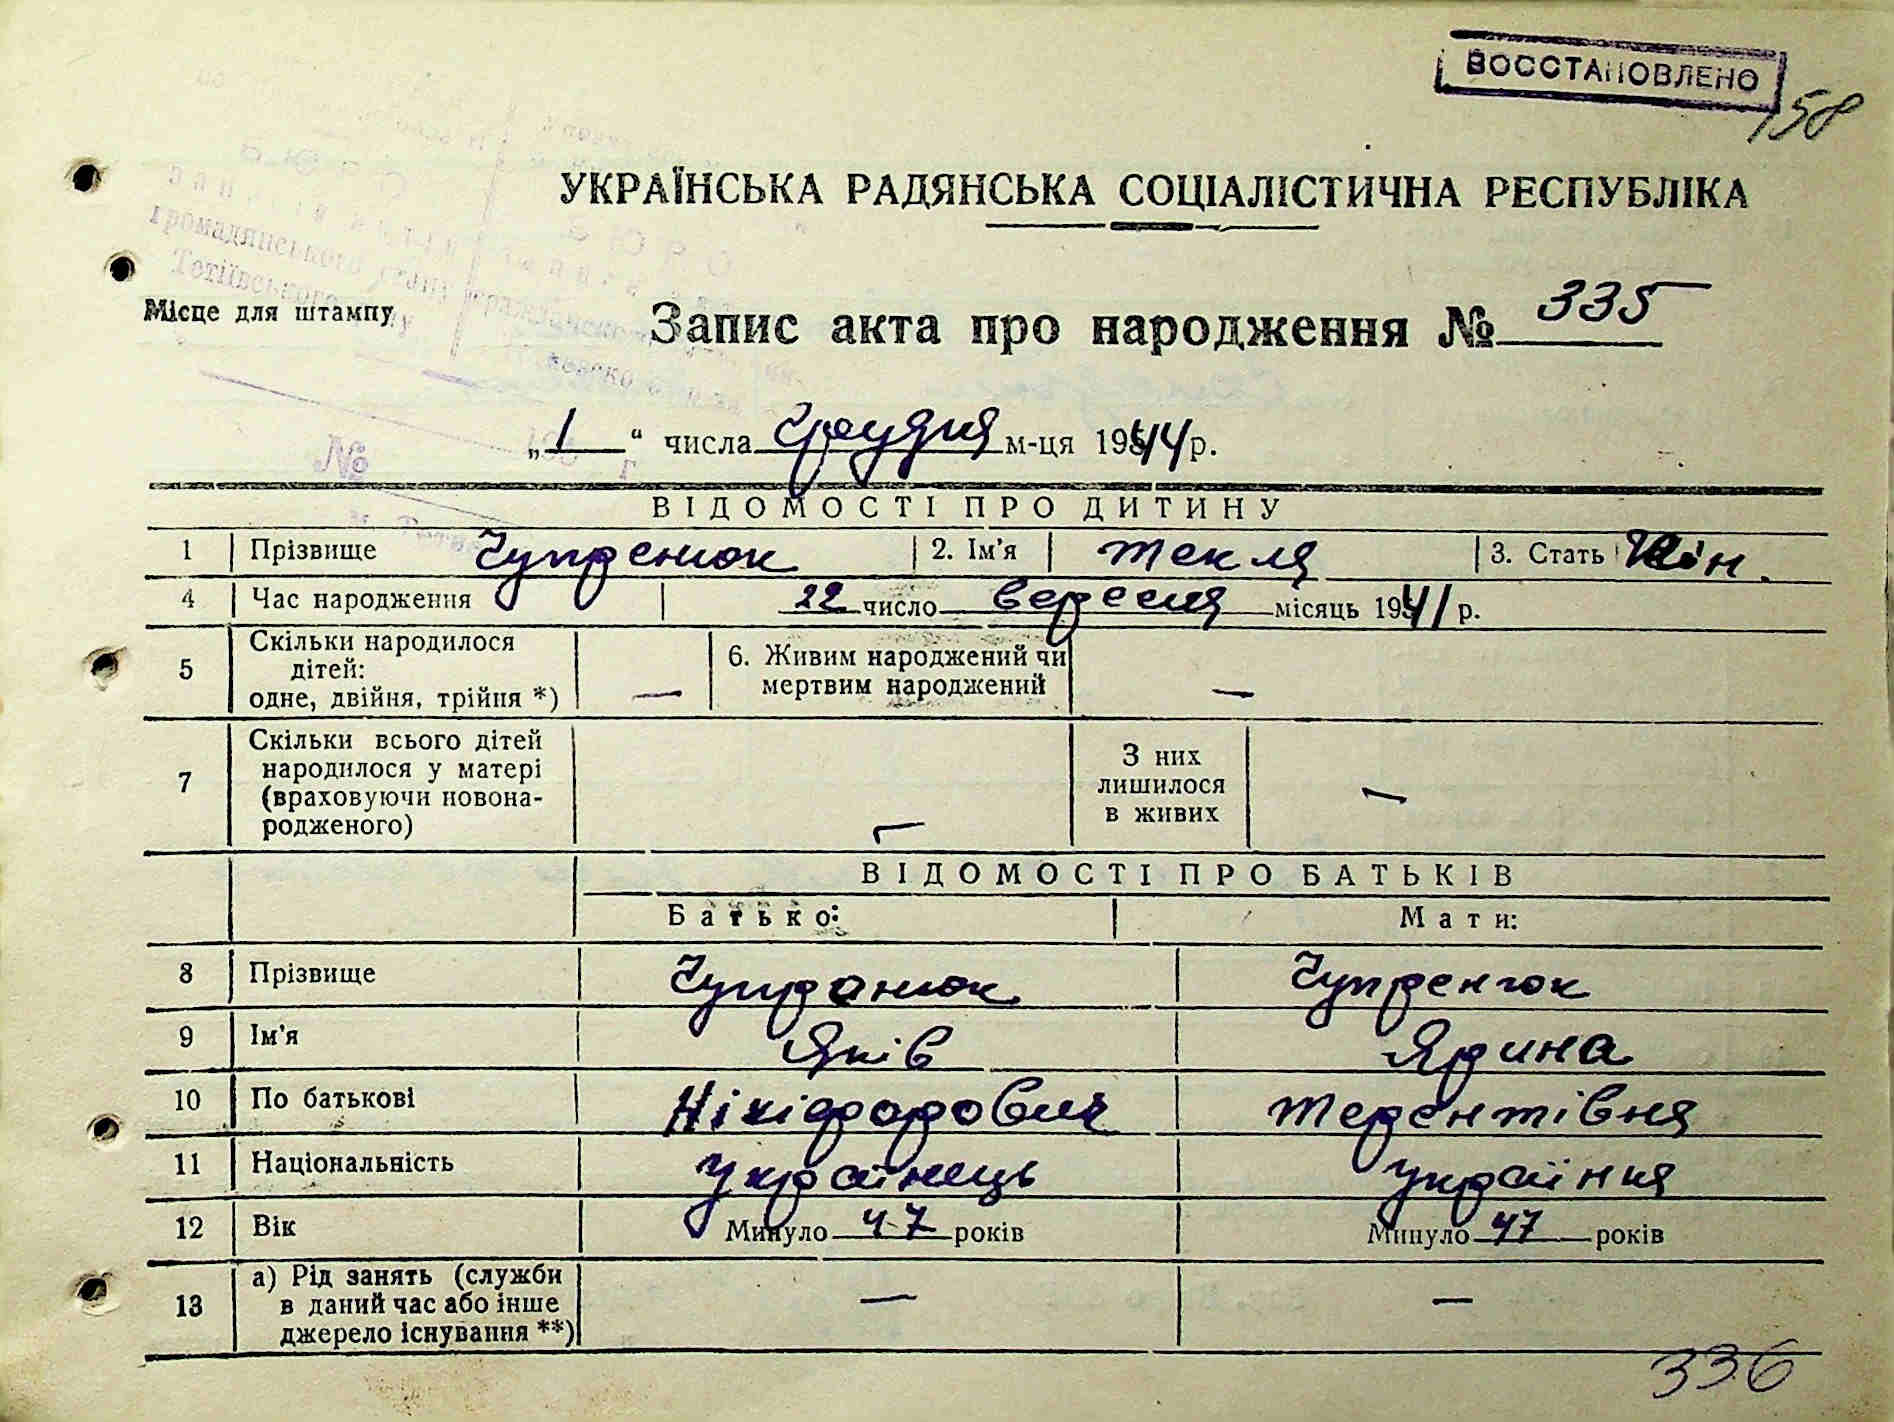 ВОССТАНОВЛЕНО
158
УКРАЇНСЬКА РАДЯНСЬКА СОЦІАЛІСТИЧНА РЕСПУБЛІКА
громадянського стану
Тетіївського
Місце для штампу
Запис акта про народження № 335
„1“ числа Грудня м-ця 1944 р.
№
ВІДОМОСТІ ПРО ДИТИНУ
1 Прізвище Чупренюк 2. Ім'я Текля 3. Стать Жін.
4 Час народження 22 число вересня місяць 1941 р.
5 Скільки народилося дітей: одне, двійня, трійня *) — 6. Живим народжений чи мертвим народжений —
7 Скільки всього дітей народилося у матері (враховуючи новонародженого) — З них лишилося в живих —
ВІДОМОСТІ ПРО БАТЬКІВ
Батько: Мати:
8 Прізвище Чупренюк Чупренюк
9 Ім'я Яків Ярина
10 По батькові Нікіфорович Терентівня
11 Національність Українець Українка
12 Вік Минуло 47 років Минуло 47 років
13 а) Рід занять (служби в даний час або інше джерело існування **) — —
336